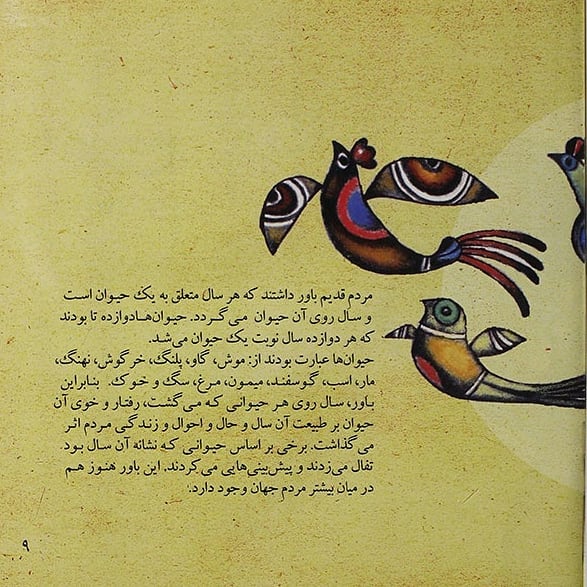 مردم قدیم باور داشتند که هر سال متعلق به یک حیوان است
و سال روی آن حیوان می‌گردد. حیوان‌هادوازده تا بودند
که هر دوازده سال نوبت یک حیوان می‌شد.
حیوان‌ها عبارت بودند از: موش، گاو، پلنگ، خرگوش، نهنگ،
مار، اسب، گوسفند، میمون، مرغ، سگ و خوک. بنابراین
باور، سال روی هر حیوانی که می‌گشت، رفتار و خوی آن
حیوان بر طبیعت آن سال و حال و احوال و زندگی مردم اثر
می‌گذاشت. برخی بر اساس حیوانی که نشانه آن سال بود
تفال می‌زدند و پیش‌بینی‌هایی می‌کردند. این باور هنوز هم
در میان بیشتر مردم جهان وجود دارد.
۹